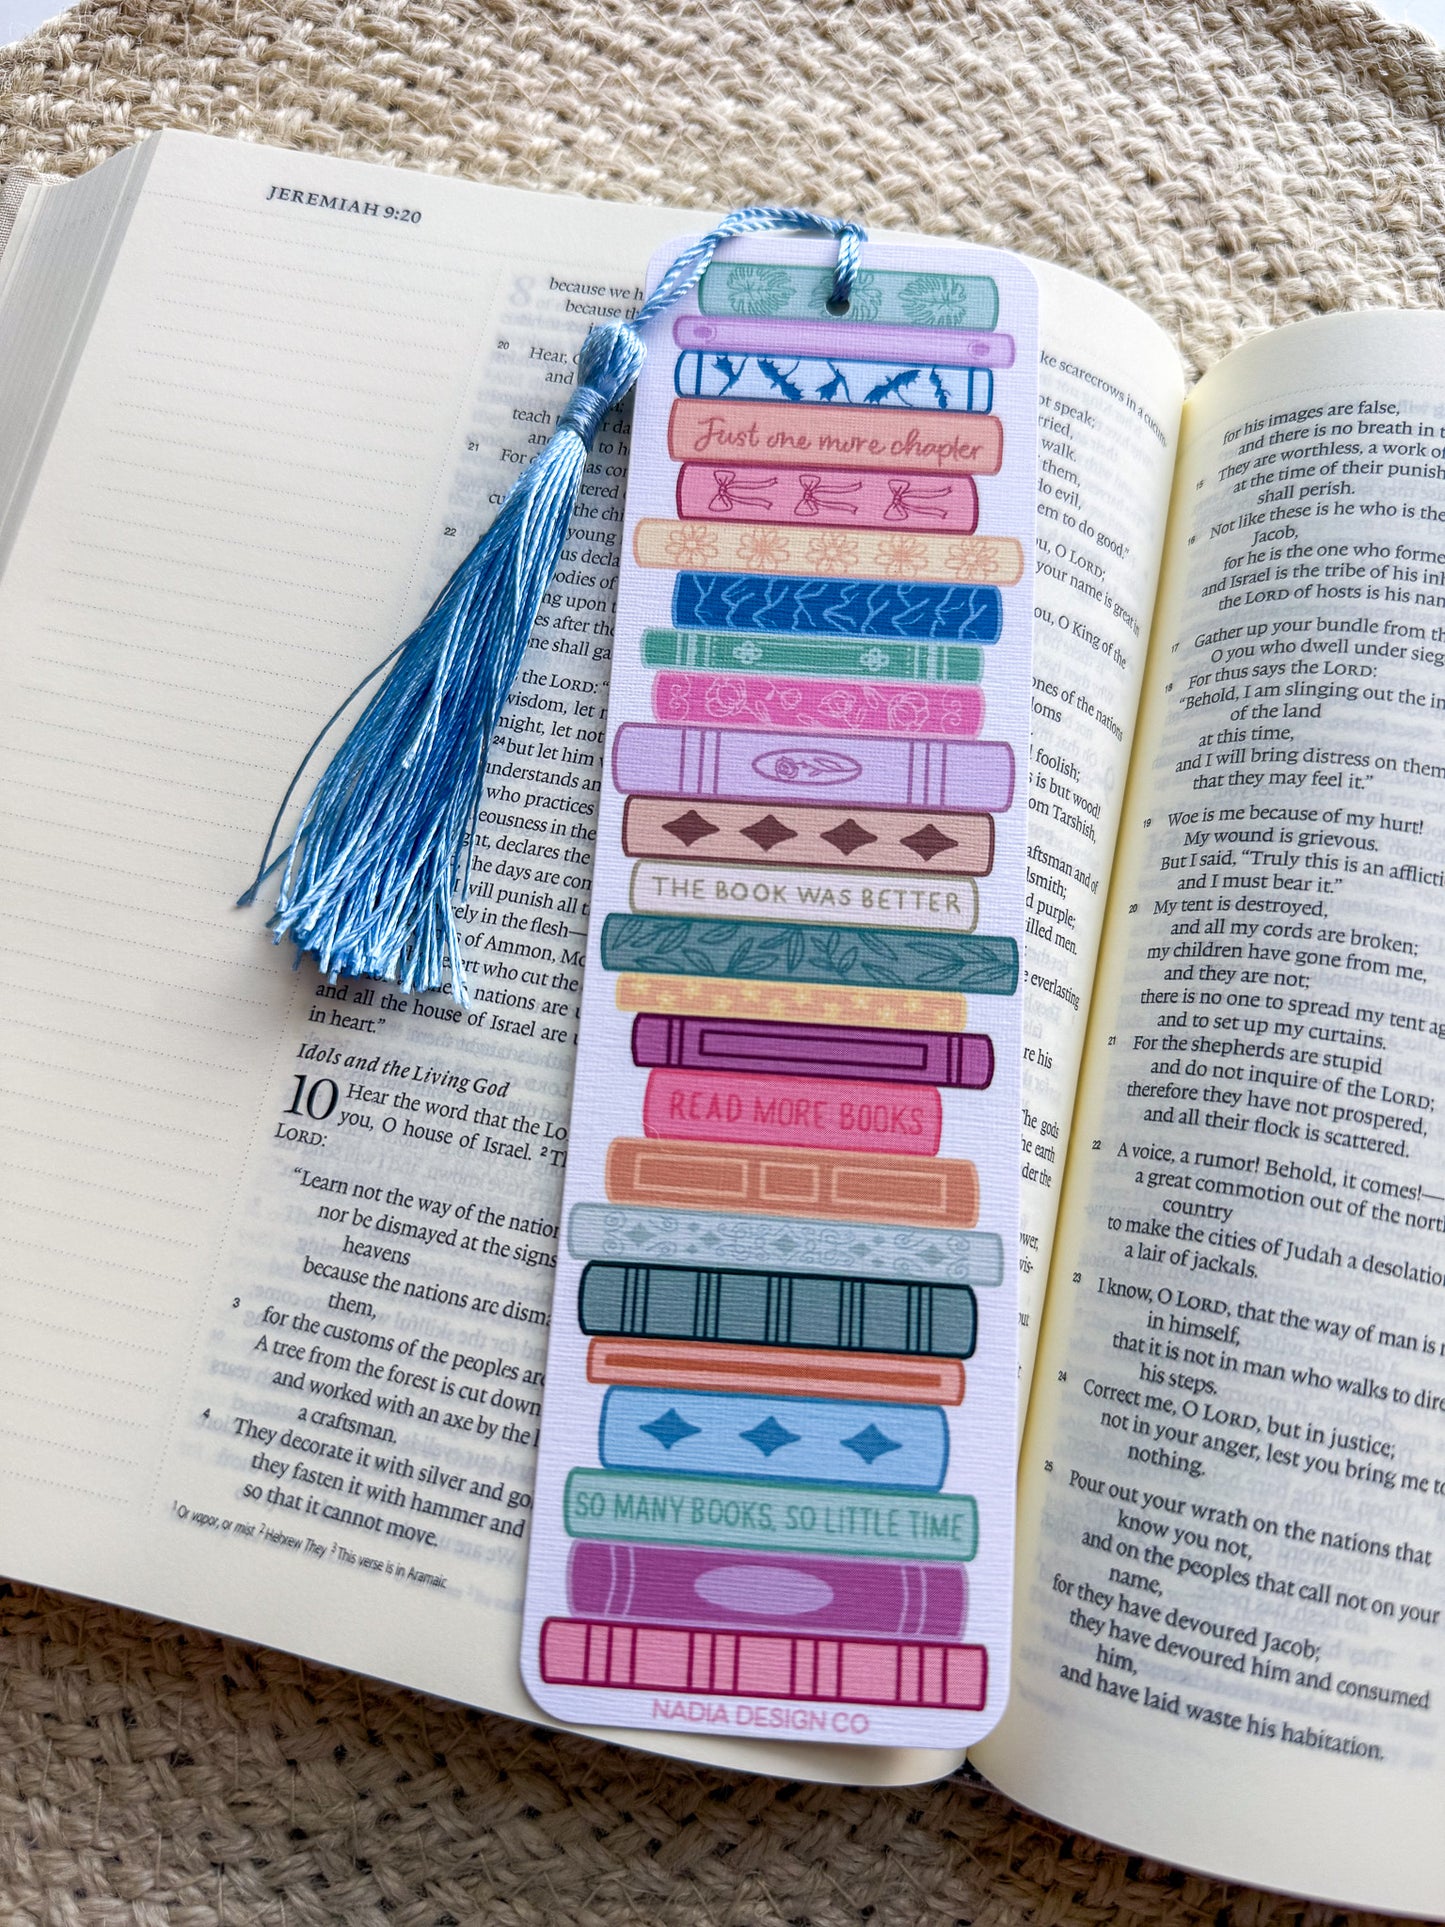 JEREMIAH 9:20
8
because we h
because th
20 Hear,
and
teach
and
21 For
22
the LORD: "
wisdom, let
might, let not
24 but let him
understands an
who practices
eousness in the
declares the
the days are com
will punish all
in the flesh—
of Ammon, Mo
desert who cut the
nations are
and all the house of Israel are
in heart."
Idols and the Living God
10 Hear the word that the LO
you, O house of Israel. 2 Th
LORD:
"Learn not the way of the nation
nor be dismayed at the signs
heavens
because the nations are disma
them,
3 for the customs of the peoples are
A tree from the forest is cut down
and worked with an axe by the
a craftsman.
4 They decorate it with silver and go
they fasten it with hammer and
so that it cannot move.
1 Or vapor, or mist 2 Hebrew They 3 This verse is in Aramaic
Just one more chapter
THE BOOK WAS BETTER
READ MORE BOOKS
SO MANY BOOKS, SO LITTLE TIME
NADIA DESIGN CO
ke scarecrows in a cucum
ot speak;
rried,
walk.
them,
do evil,
em to do good."
ou, O LORD;
your name is great in
ou, O King of the
ones of the nations
doms
foolish;
is but wood!
om Tarshish,
aftsman and of
ldsmith;
d purple;
illed men.
everlasting
The gods
the earth
der the
for his images are false,
and there is no breath in t
15 They are worthless, a work of
at the time of their punish
shall perish.
16 Not like these is he who is the
Jacob,
for he is the one who forme
and Israel is the tribe of his inh
the LORD of hosts is his nam
17 Gather up your bundle from th
O you who dwell under sieg
18 For thus says the LORD:
"Behold, I am slinging out the in
of the land
at this time,
and I will bring distress on them
that they may feel it."
19 Woe is me because of my hurt!
My wound is grievous.
But I said, "Truly this is an afflicti
and I must bear it."
20 My tent is destroyed,
and all my cords are broken;
my children have gone from me,
and they are not;
there is no one to spread my tent ag
and to set up my curtains.
21 For the shepherds are stupid
and do not inquire of the LORD;
therefore they have not prospered,
and all their flock is scattered.
22 A voice, a rumor! Behold, it comes!—
a great commotion out of the north
country
to make the cities of Judah a desolation
a lair of jackals.
23 I know, O LORD, that the way of man is n
in himself,
that it is not in man who walks to dire
his steps.
24 Correct me, O LORD, but in justice;
not in your anger, lest you bring me to
nothing.
25 Pour out your wrath on the nations that
know you not,
and on the peoples that call not on your
name,
for they have devoured Jacob;
they have devoured him and consumed
him,
and have laid waste his habitation.